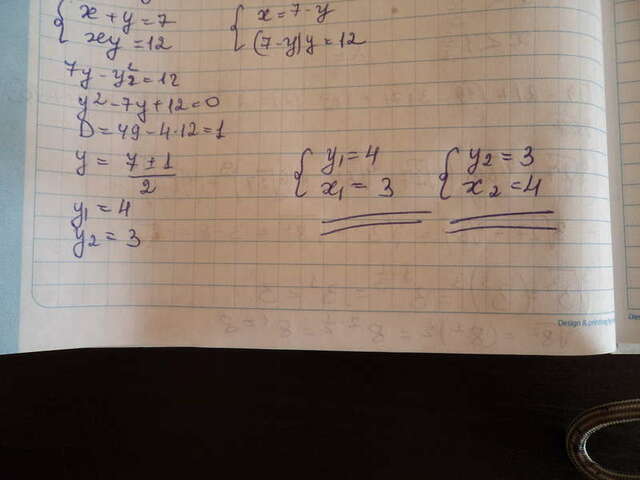 x + y = 7
xy = 12
x = 7 - y
(7-y)y = 12
7y - y² = 12
y² - 7y + 12 = 0
D = 49 - 4·12 = 1
y = (7 ± 1)/2
y₁ = 4
y₂ = 3
y₁ = 4
x₁ = 3
y₂ = 3
x₂ = 4